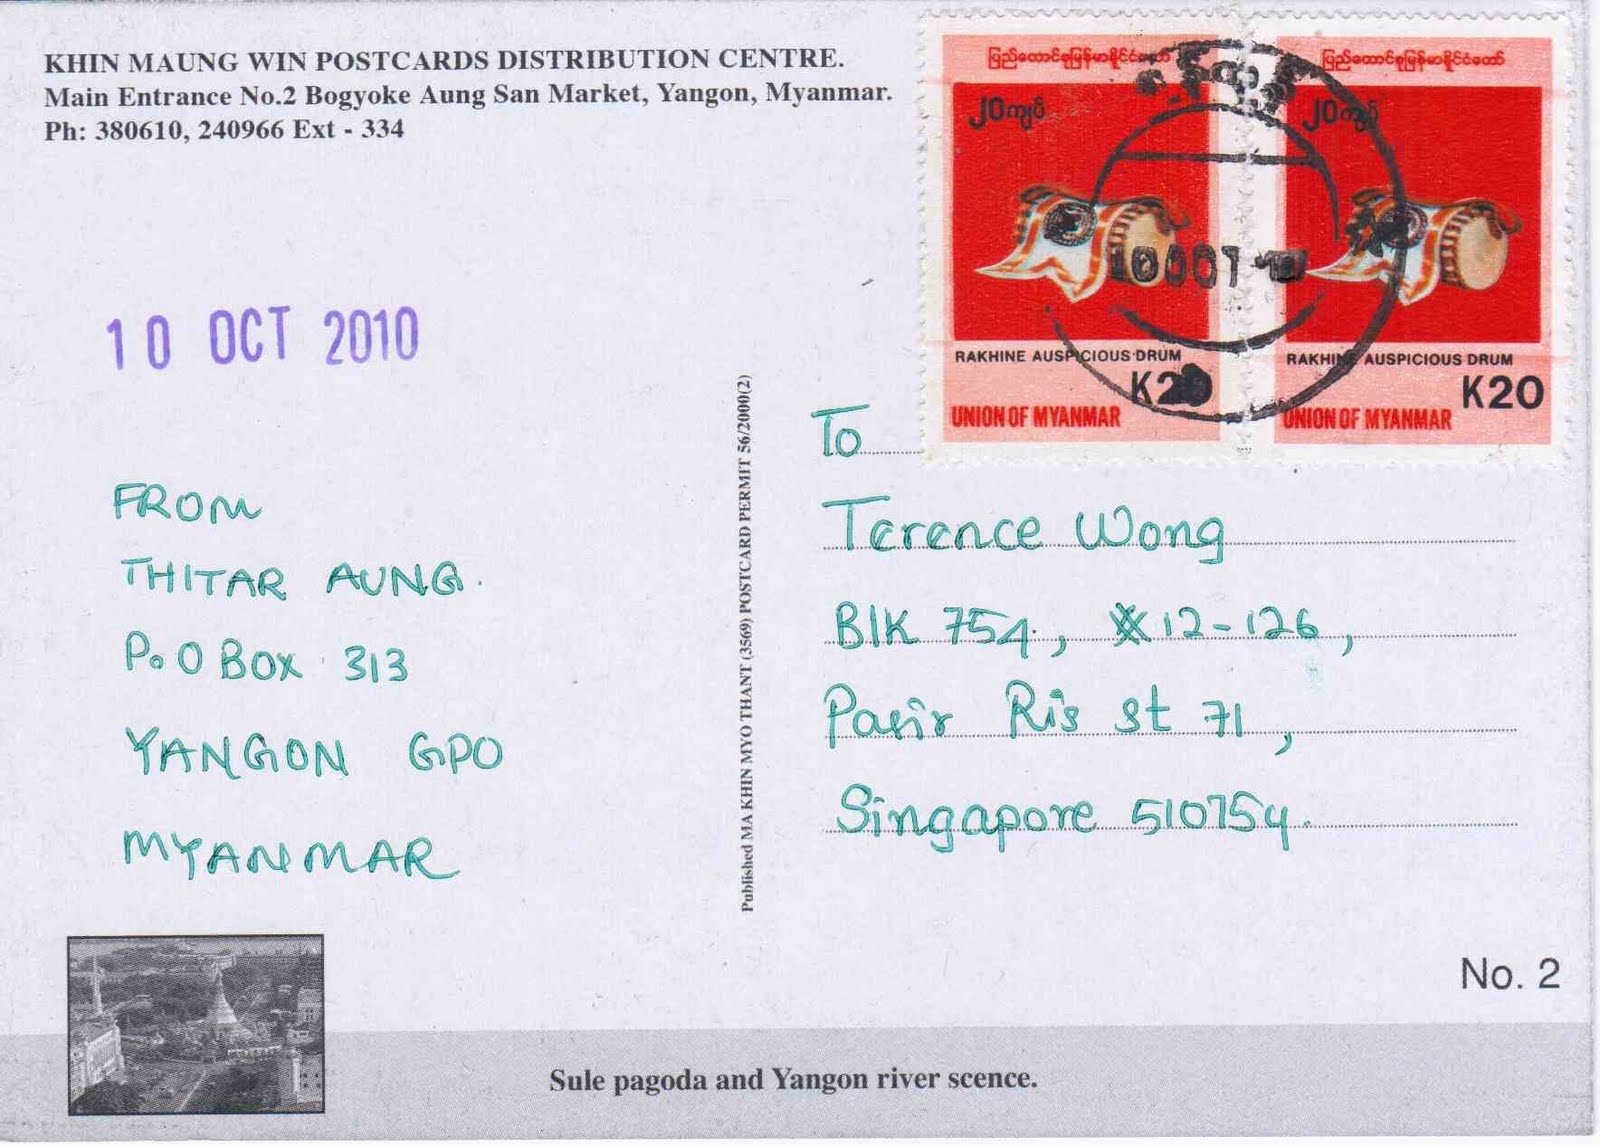 KHIN MAUNG WIN POSTCARDS DISTRIBUTION CENTRE.
Main Entrance No.2 Bogyoke Aung San Market, Yangon, Myanmar.
Ph: 380610, 240966 Ext - 334
ပြည်ထောင်စုမြန်မာနိုင်ငံတော်
၂၀ကျပ်
RAKHINE AUSPICIOUS DRUM
K20
UNION OF MYANMAR
ပြည်ထောင်စုမြန်မာနိုင်ငံတော်
၂၀ကျပ်
RAKHINE AUSPICIOUS DRUM
K20
UNION OF MYANMAR
10 OCT
10 OCT 2010
FROM
THITAR AUNG.
P.O BOX 313
YANGON GPO
MYANMAR
Published MA KHIN MYO THANT (3569) POSTCARD PERMIT 56/2000(2)
To
Terence Wong
Blk 754, #12-126,
Pasir Ris st 71,
Singapore 510754.
No. 2
Sule pagoda and Yangon river scence.